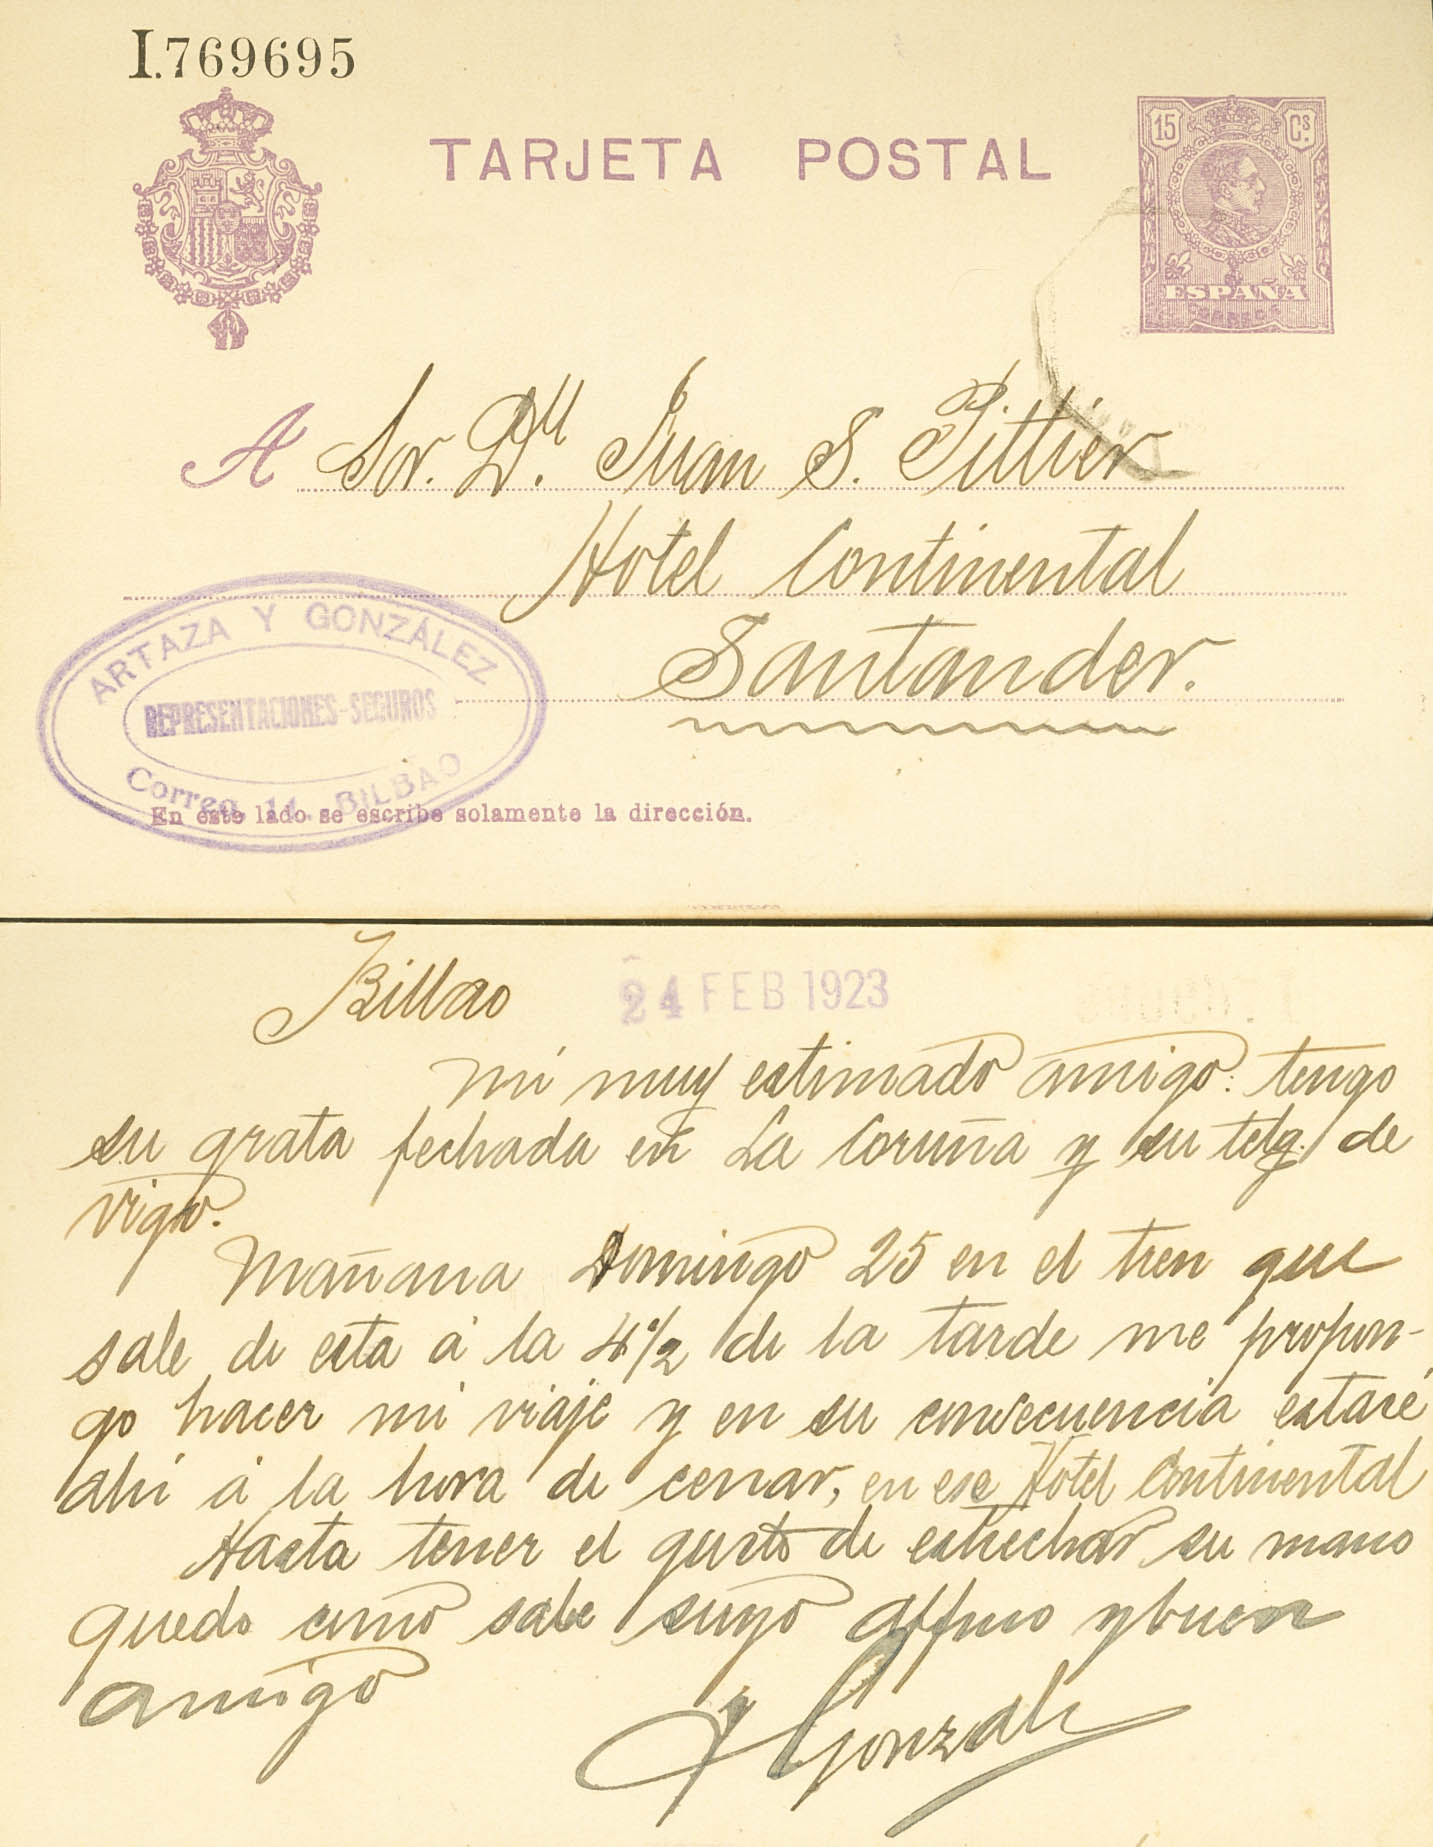 I.769695
TARJETA POSTAL
15 Cs.
ESPAÑA
A Sor. Dn. Juan S. Pittier
Hotel Continental
Santander.
ARTAZA Y GONZÁLEZ
REPRESENTACIONES-SEGUROS
Correo, 11. BILBAO
En este lado se escribe solamente la dirección.
Bilbao 24 FEB 1923
Mi muy estimado amigo: tengo
su grata fechada en La Coruña y su telg. de
Vigo.
Mañana Domingo 25 en el tren que
sale de esta á la 4 1/2 de la tarde me propon-
go hacer mi viaje y en su consecuencia estaré
ahí á la hora de cenar, en ese Hotel Continental
Hasta tener el gusto de estrechar su mano
quedo como sabe suyo affmo y buen
amigo
Gonzalez